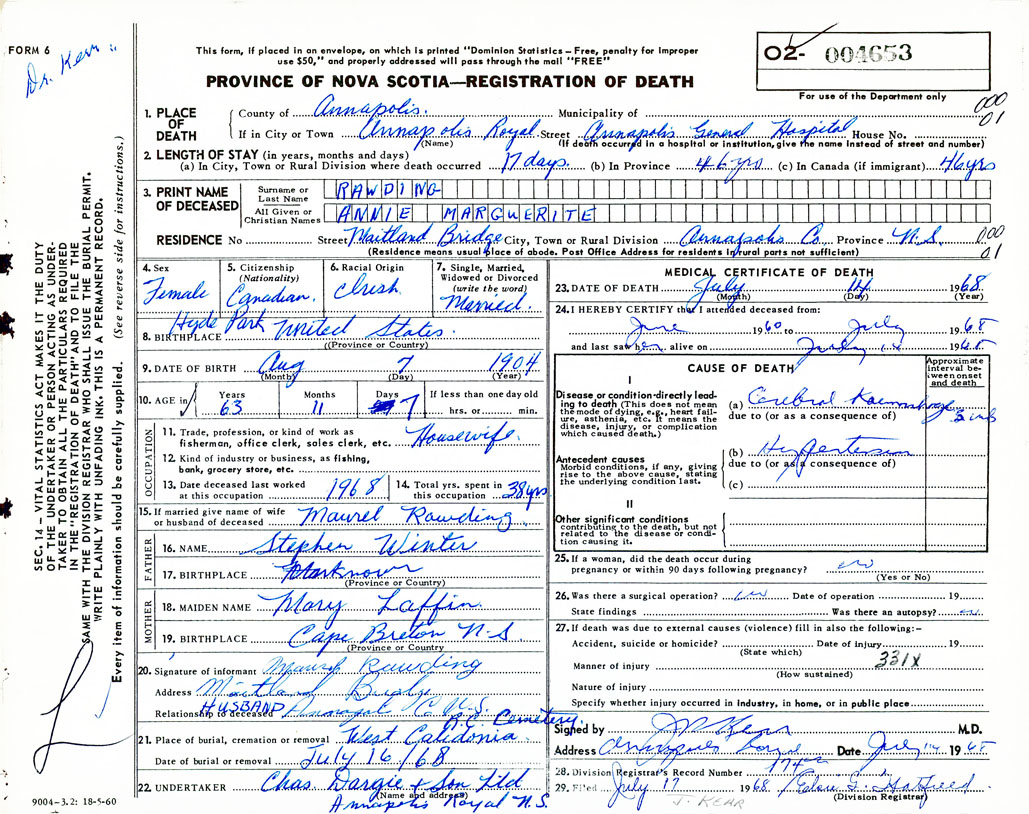 FORM 6
Dr. Kerr
This form, if placed in an envelope, on which is printed "Dominion Statistics – Free, penalty for improper
use $50," and properly addressed will pass through the mail "FREE"
PROVINCE OF NOVA SCOTIA—REGISTRATION OF DEATH
02- 004653
For use of the Department only
000
01
1. PLACE OF DEATH
County of Annapolis. Municipality of
If in City or Town Annapolis Royal Street Annapolis General Hospital House No.
(Name) (If death occurred in a hospital or institution, give the name instead of street and number)
2. LENGTH OF STAY (in years, months and days)
(a) In City, Town or Rural Division where death occurred 17 days. (b) In Province 46 yrs (c) In Canada (if immigrant) 46 yrs
3. PRINT NAME OF DECEASED
Surname or Last Name RAWDING
All Given or Christian Names ANNIE MARGUERITE
RESIDENCE No Street Maitland Bridge City, Town or Rural Division Annapolis Co. Province N.S.
000
01
(Residence means usual place of abode. Post Office Address for residents in rural parts not sufficient)
4. Sex
Female
5. Citizenship
(Nationality)
Canadian.
6. Racial Origin
Irish
7. Single, Married, Widowed or Divorced
(write the word)
Married.
8. BIRTHPLACE Hyde Park United States.
((Province or Country)
9. DATE OF BIRTH Aug 7 1904
(Month) (Day) (Year)
10. AGE in
Years
63
Months
11
Days
7
If less than one day old
hrs. or min.
OCCUPATION
11. Trade, profession, or kind of work as
fisherman, office clerk, sales clerk, etc. Housewife.
12. Kind of industry or business, as fishing,
bank, grocery store, etc.
13. Date deceased last worked
at this occupation 1968
14. Total yrs. spent in
this occupation 38 yrs
15. If married give name of wife
or husband of deceased Rawding
FATHER
16. NAME Stephen Winter
17. BIRTHPLACE
(Province or Country)
MOTHER
18. MAIDEN NAME Mary Laffin.
19. BIRTHPLACE Cape Breton N.S.
(Province or Country
20. Signature of informant Rawding
Address Maitland Bridge
Relationship to deceased HUSBAND Co. N.S.
R.C. Cemetery.
21. Place of burial, cremation or removal West Caledonia.
Date of burial or removal July 16/68
22. UNDERTAKER Chas. Dargie & Son Ltd
(Name and address)
Annapolis Royal N.S.
9004–3.2: 18-5-60
MEDICAL CERTIFICATE OF DEATH
23. DATE OF DEATH July 14 1968
(Month) (Day) (Year)
24. I HEREBY CERTIFY that I attended deceased from:
June 1960 to July 1968
and last saw her alive on July 14 1968
CAUSE OF DEATH
Approximate interval between onset and death
I
Disease or condition directly leading to death (This does not mean the mode of dying, e.g., heart failure, asthenia, etc. It means the disease, injury, or complication which caused death.)
(a) Cerebral Haemorrhage
due to (or as a consequence of)
Antecedent causes
Morbid conditions, if any, giving rise to the above cause, stating the underlying condition last.
(b) Hypertension
due to (or as a consequence of)
(c)
II
Other significant conditions
contributing to the death, but not related to the disease or condition causing it.
25. If a woman, did the death occur during
pregnancy or within 90 days following pregnancy? no
(Yes or No)
26. Was there a surgical operation? no Date of operation 19
State findings Was there an autopsy? no
27. If death was due to external causes (violence) fill in also the following:–
Accident, suicide or homicide? Date of injury 19
(State which)
331X
Manner of injury
(How sustained)
Nature of injury
Specify whether injury occurred in Industry, in home, or in public place
Signed by Kerr M.D.
Address Annapolis Royal Date July 14 1968
28. Division Registrar's Record Number
29. Filed July 17 1968 Hatfield
(Division Registrar)
J. KERR
SEC. 14 – VITAL STATISTICS ACT MAKES IT THE DUTY
OF THE UNDERTAKER OR PERSON ACTING AS UNDER-
TAKER TO OBTAIN ALL THE PARTICULARS REQUIRED
IN THE "REGISTRATION OF DEATH" AND TO FILE THE
SAME WITH THE DIVISION REGISTRAR WHO SHALL ISSUE THE BURIAL PERMIT.
WRITE PLAINLY WITH UNFADING INK. THIS IS A PERMANENT RECORD.
Every item of information should be carefully supplied. (See reverse side for instructions.)